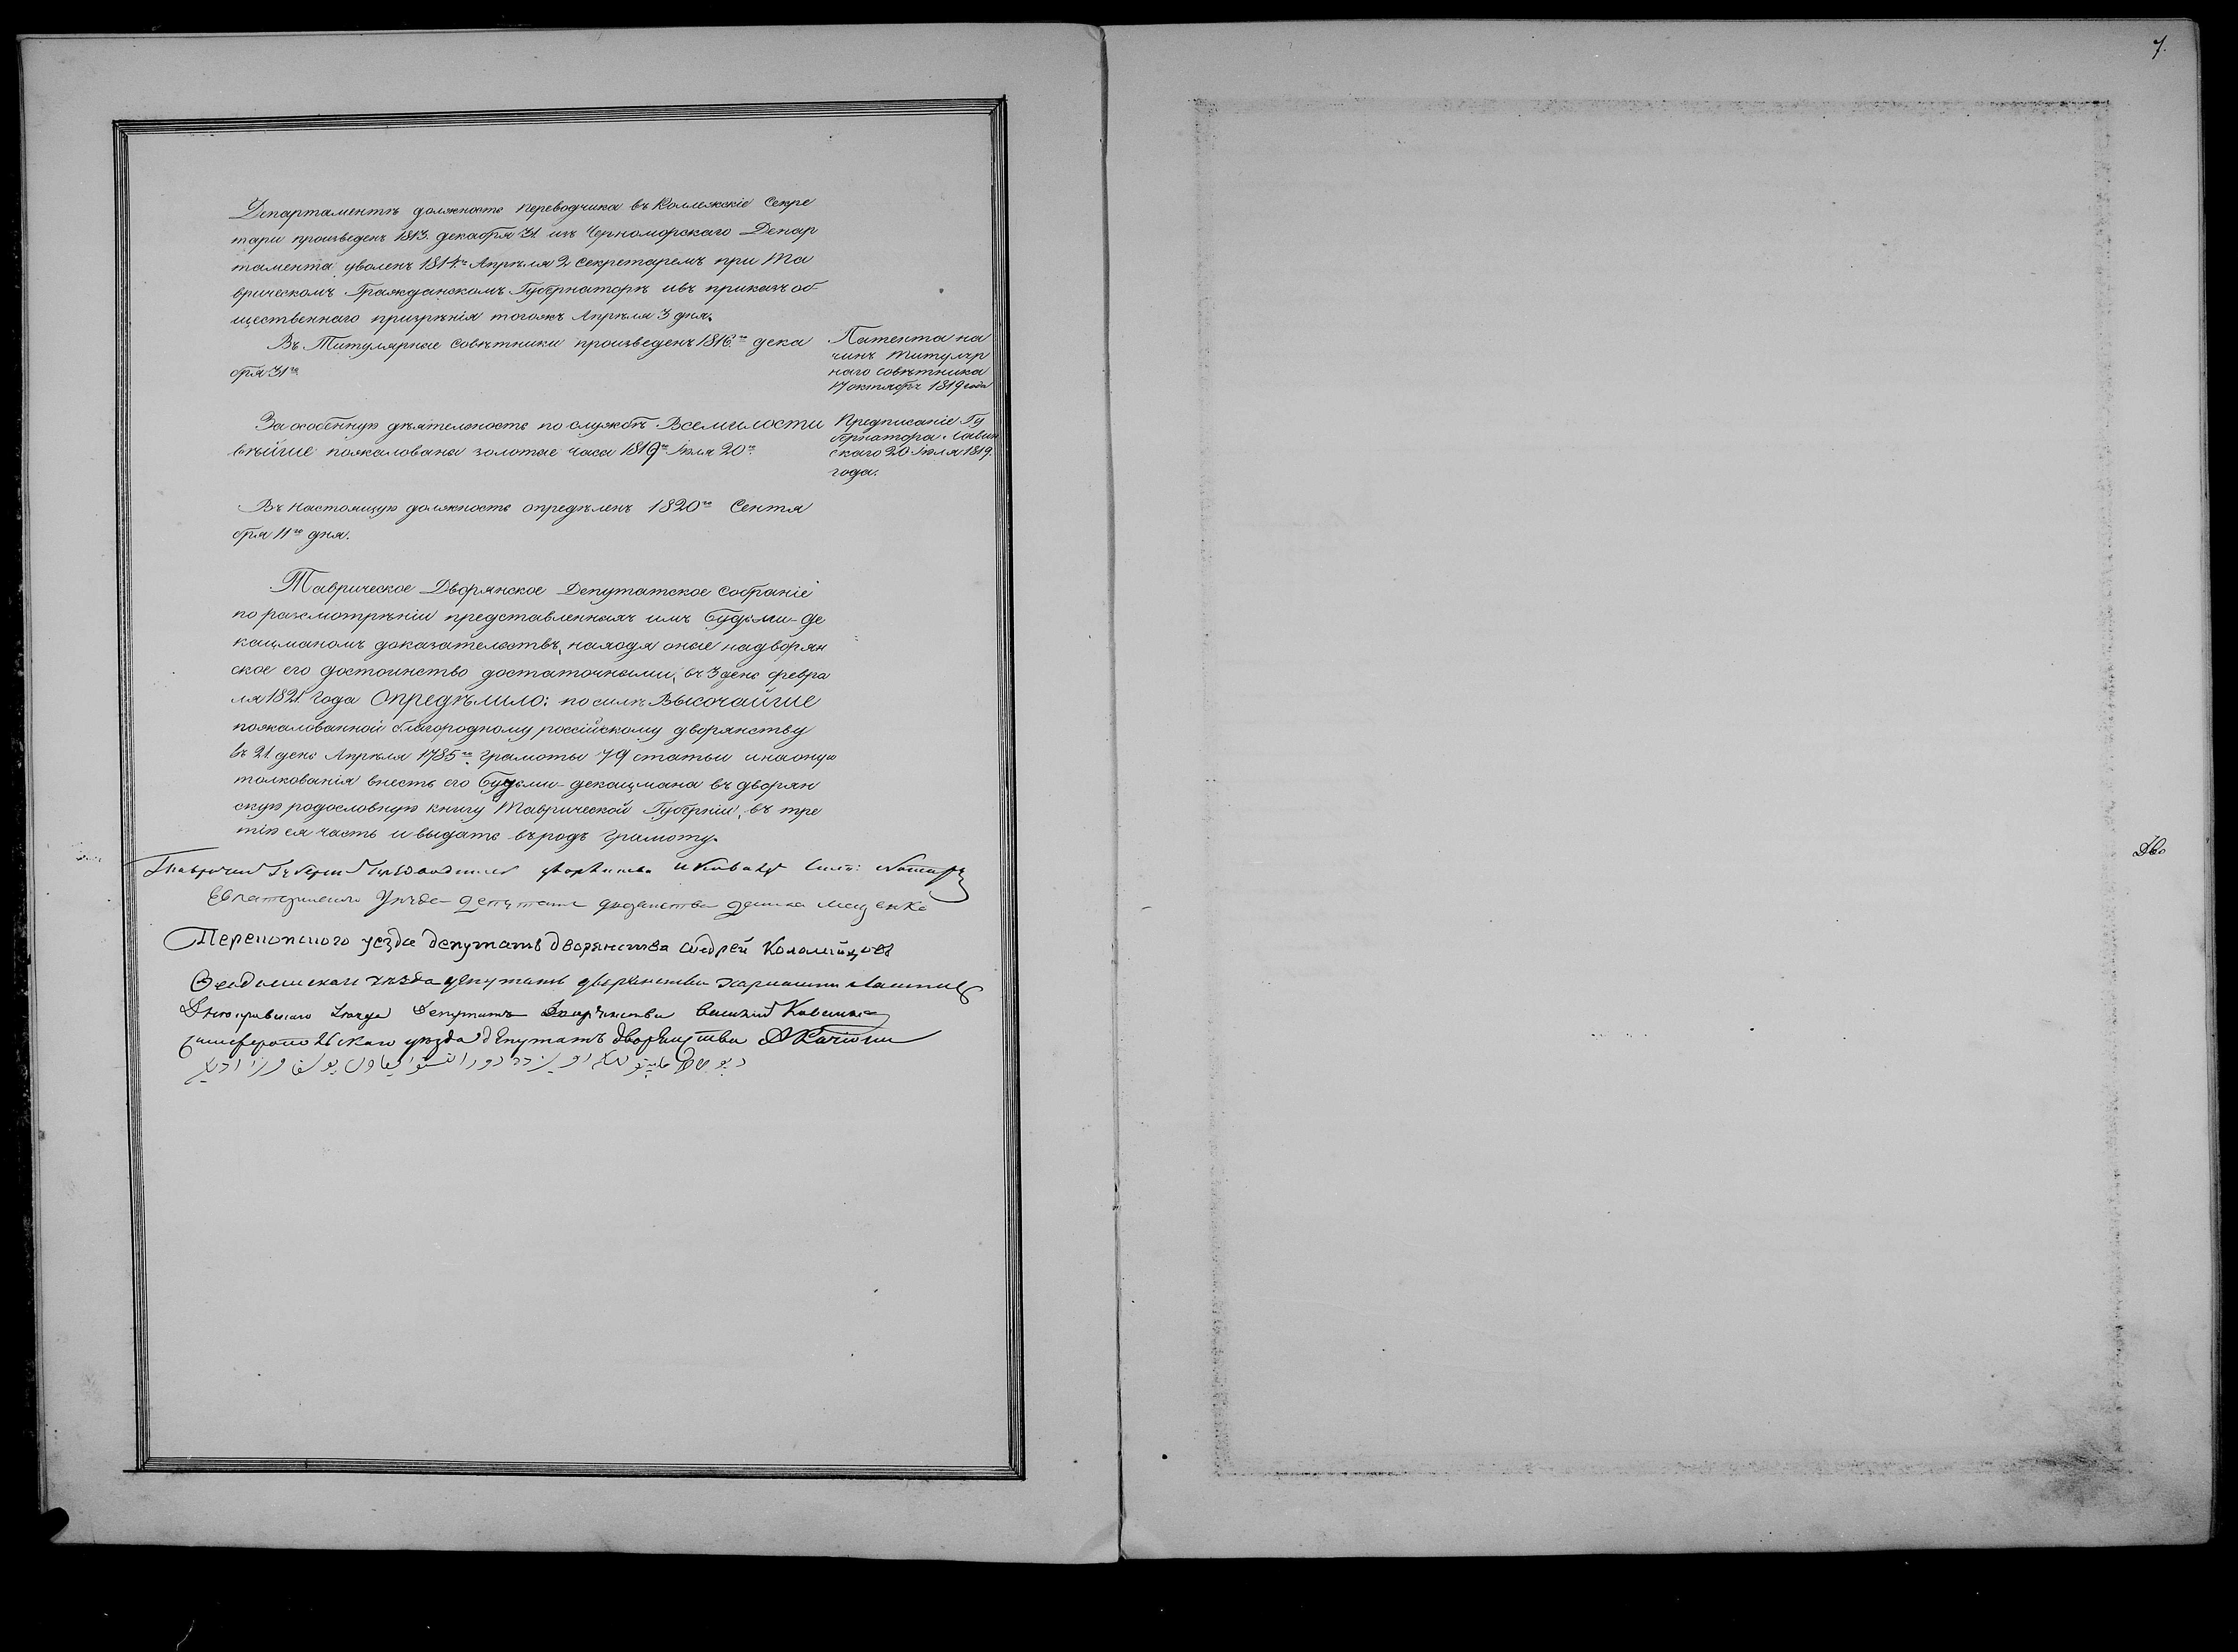 7.
Департаментъ должность переводчика въ Коллежскіе Секре
тари произведенъ 1813. декабря 31 изъ Черноморскаго Депар
тамента уволенъ 1814.го Апрѣля 2 Секретаремъ при Та
врическомъ Гражданскомъ Губернаторѣ и въ приказъ об-
щественнаго призрѣнія тогожъ Апрѣля 3 дня.
Въ Титулярные Совѣтники произведенъ 1816.го дека
бря 31го
Патента на
чинъ Титуляр
наго совѣтника
17 октябрѣ 1819 года
За особенную дѣятельность по службѣ Всемилости
вѣйше пожалованы золотые часы 1819го Іюля 20го
Предписаніе Гу
бернатора Лавин
скаго 20 Іюля 1819.
года.
Въ настоящую должность опредѣленъ 1820го Сентя
бря 11го дня.
Таврическое Дворянское Депутатское Собраніе
по разсмотрѣніи представленныхъ имъ Будзьми-де
кацманомъ доказательствъ, находя оные на дворян
ское его достоинство достаточными, въ 3 день февра
ля 1821. года Опредѣлило: по силѣ Высочайше
пожалованной благородному россійскому дворянству
въ 21 день Апрѣля 1785го грамоты 79 статьи и на оную
толкованія внесть его Будзьми-декацмана въ дворян
скую родословную книгу Таврической Губерніи, въ тре
тію ея часть и выдать въ родъ грамоту.
дворянства
Депутатъ дворянства
Перекопского уезда депутатъ дворянства Андрей Коломійцовъ
уѣзда депутатъ дворянства
Днепровского уезда Депутатъ Дворянства Василий
Симферопольскаго уѣзда депутатъ дворянства
Дво